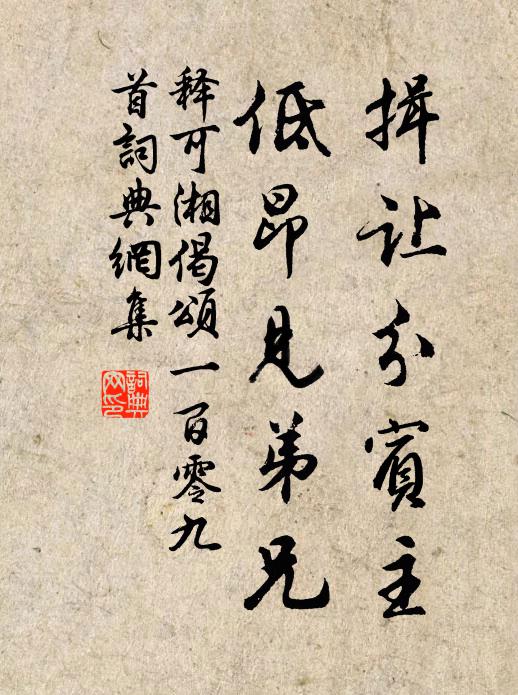 揖让分賓主
低昂見弟兄
释可湘偈頌一百零九
首詞典網集
詞典
网印